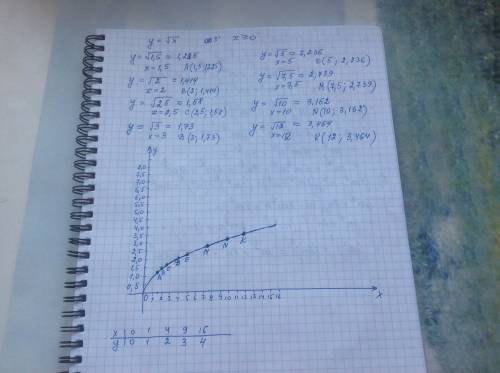 y = √x   x ≥ 0
y = √1,5 = 1,225
x = 1,5   A(1,5; 1,225)
y = √2 = 1,414
x = 2   B(2; 1,414)
y = √2,5 = 1,58
x = 2,5   C(2,5; 1,58)
y = √3 = 1,73
x = 3   B(3; 1,73)
y = √5 = 2,236
x = 5   E(5; 2,236)
y = √7,5 = 2,739
x = 7,5   M(7,5; 2,739)
y = √10 = 3,162
x = 10   N(10; 3,162)
y = √12 = 3,464
x = 12   K(12; 3,464)
y
8,0
7,5
7,0
6,5
6,0
5,5
5,0
4,5
4,0
3,5
3,0
2,5
2,0
1,5
1,0
0,5
A B C B E M N K
0 1 2 3 4 5 6 7 8 9 10 11 12 13 14 15 16
x
x 0 1 4 9 16
y 0 1 2 3 4